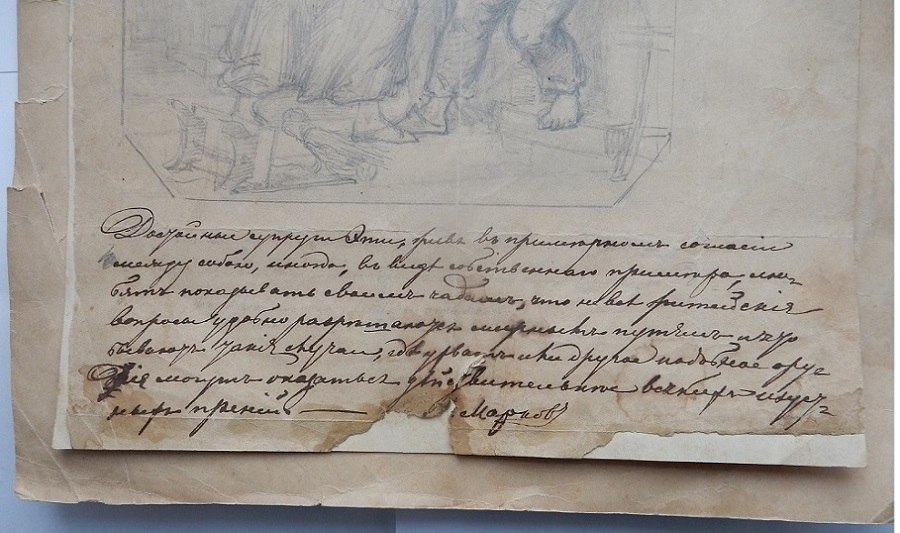 Достойные супруги Эти, живя въ примѣрномъ согласіи
между собою, иногда, въ видѣ собственнаго примѣра, лю-
бятъ показывать своимъ чадамъ, что не всѣ житейскія
вопросы удобно разрѣшаются мирнымъ путемъ и что
бываютъ такія случаи, гдѣ ухватъ или другое подобное ору
жія могутъ оказаться дѣйствительнѣе всякихъ изуст-
ныхъ преній. — Марковъ